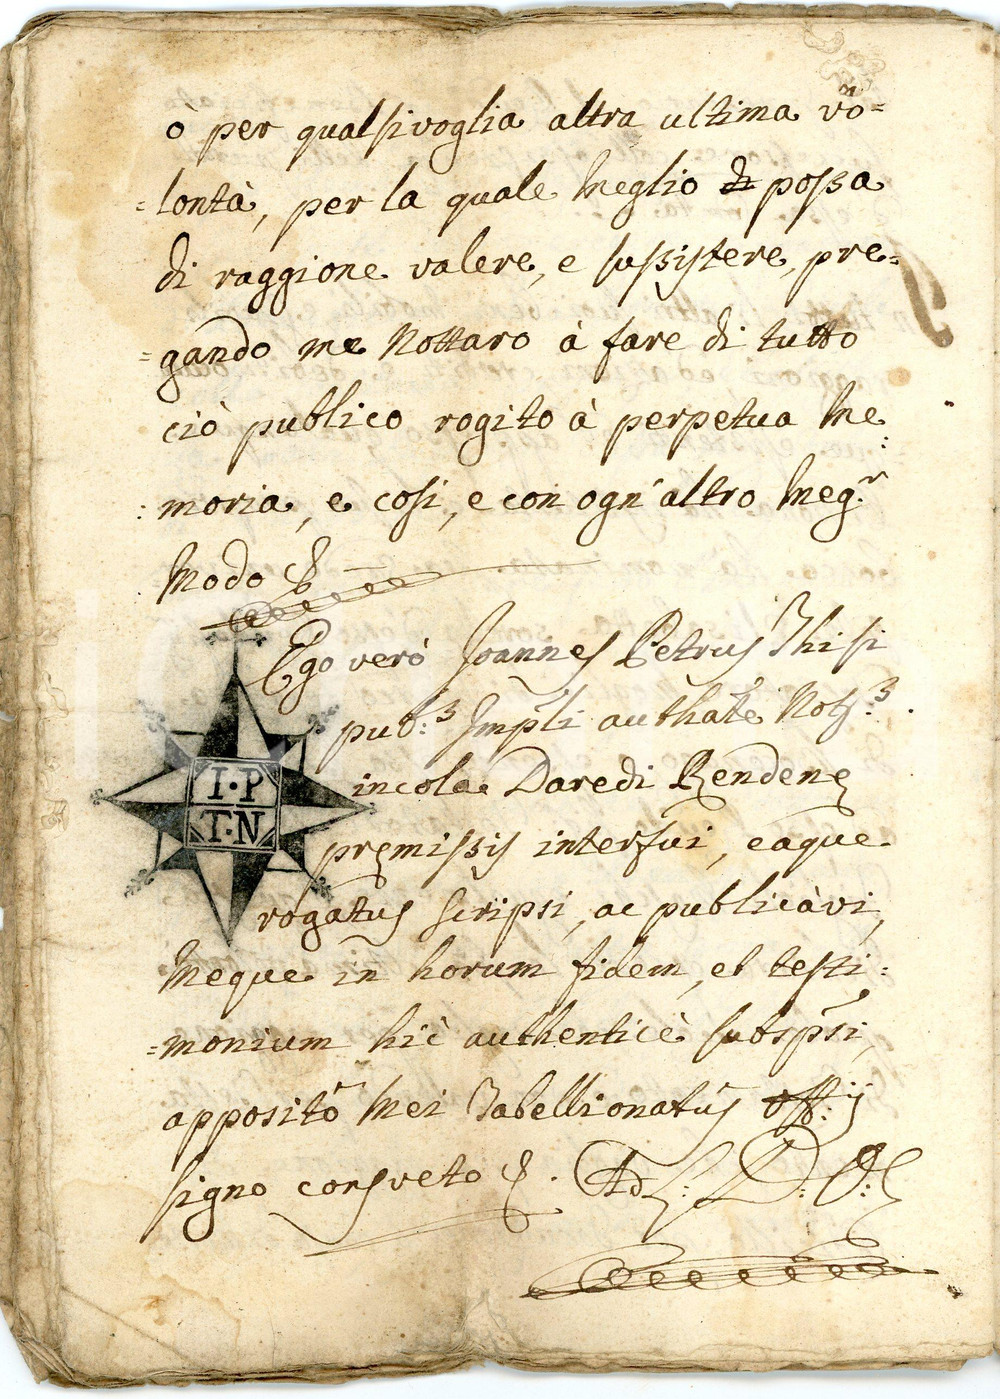 ò per qualsivoglia altra ultima vo=
=lontà, per la quale meglio di possa
di raggione valere, e sussistere, pre=
=gando me Nottaro à fare di tutto
ciò publico rogito à perpetua me:
:moria, e cosi, e con ogn'altro meg:r
modo &
Ego verò Joannes Petrus Thisi
pub:3 Imp:li authate Not:3
incola Daredi Rendenę
pręmissis interfui, eaque
rogatus scripsi, ac publicàvi,
meque in horum fidem, et testi:
=monium hic authenticè subspsi,
apposito mei Tabellionatus off:ij
signo consueto &. Ad L: D: O:
I·P
T·N